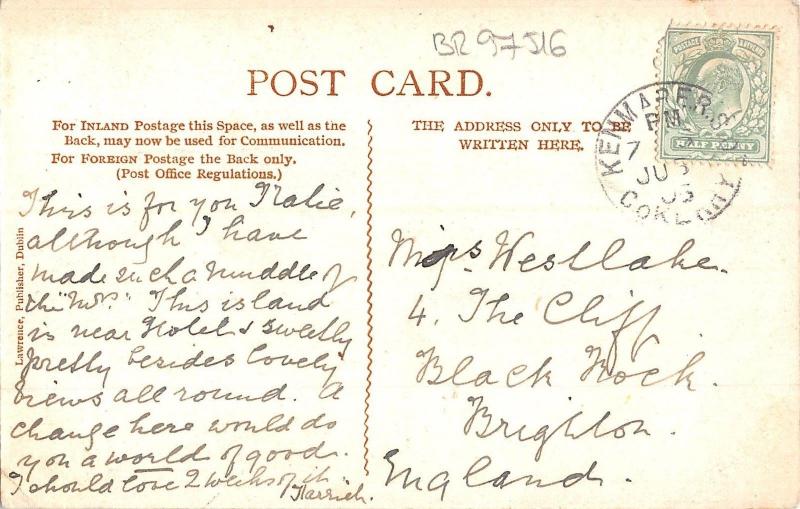 BR97516
POST CARD.
For INLAND Postage this Space, as well as the
Back, may now be used for Communication.
For FOREIGN Postage the Back only.
(Post Office Regulations.)
THE ADDRESS ONLY TO BE
WRITTEN HERE.
POSTAGE
HALF PENNY
KENMARE
PM
7
JU
05
Lawrence, Publisher, Dublin
This is for you
although I have
made such a muddle of
the "Mrs." This island
is near Hotel & sweetly
pretty besides lovely
views all round. A
change here would do
you a world of good.
I should love 2 weeks of it.
Westlake.
4. The Cliff
Black Rock.
Brighton.
England.